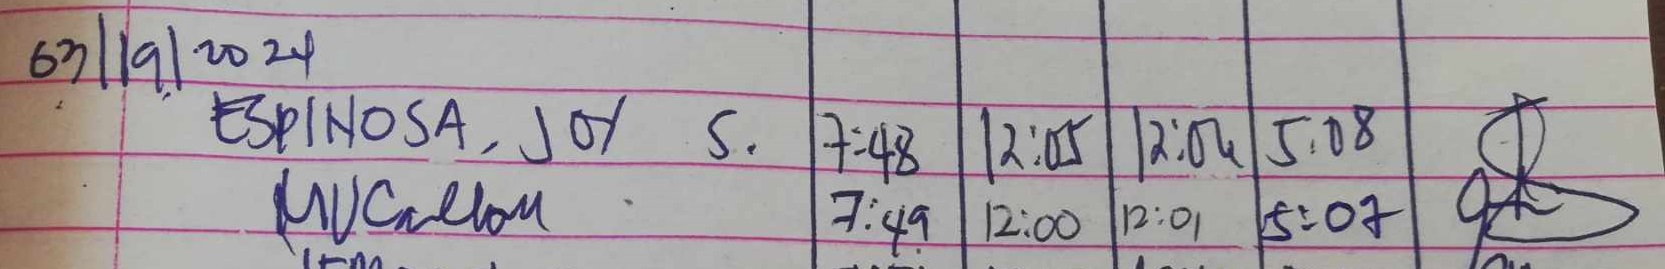 03/19/2024
ESPINOSA, JOY S. 7:48 12:05 12:04 5:08
7:49 12:00 12:01 5:07